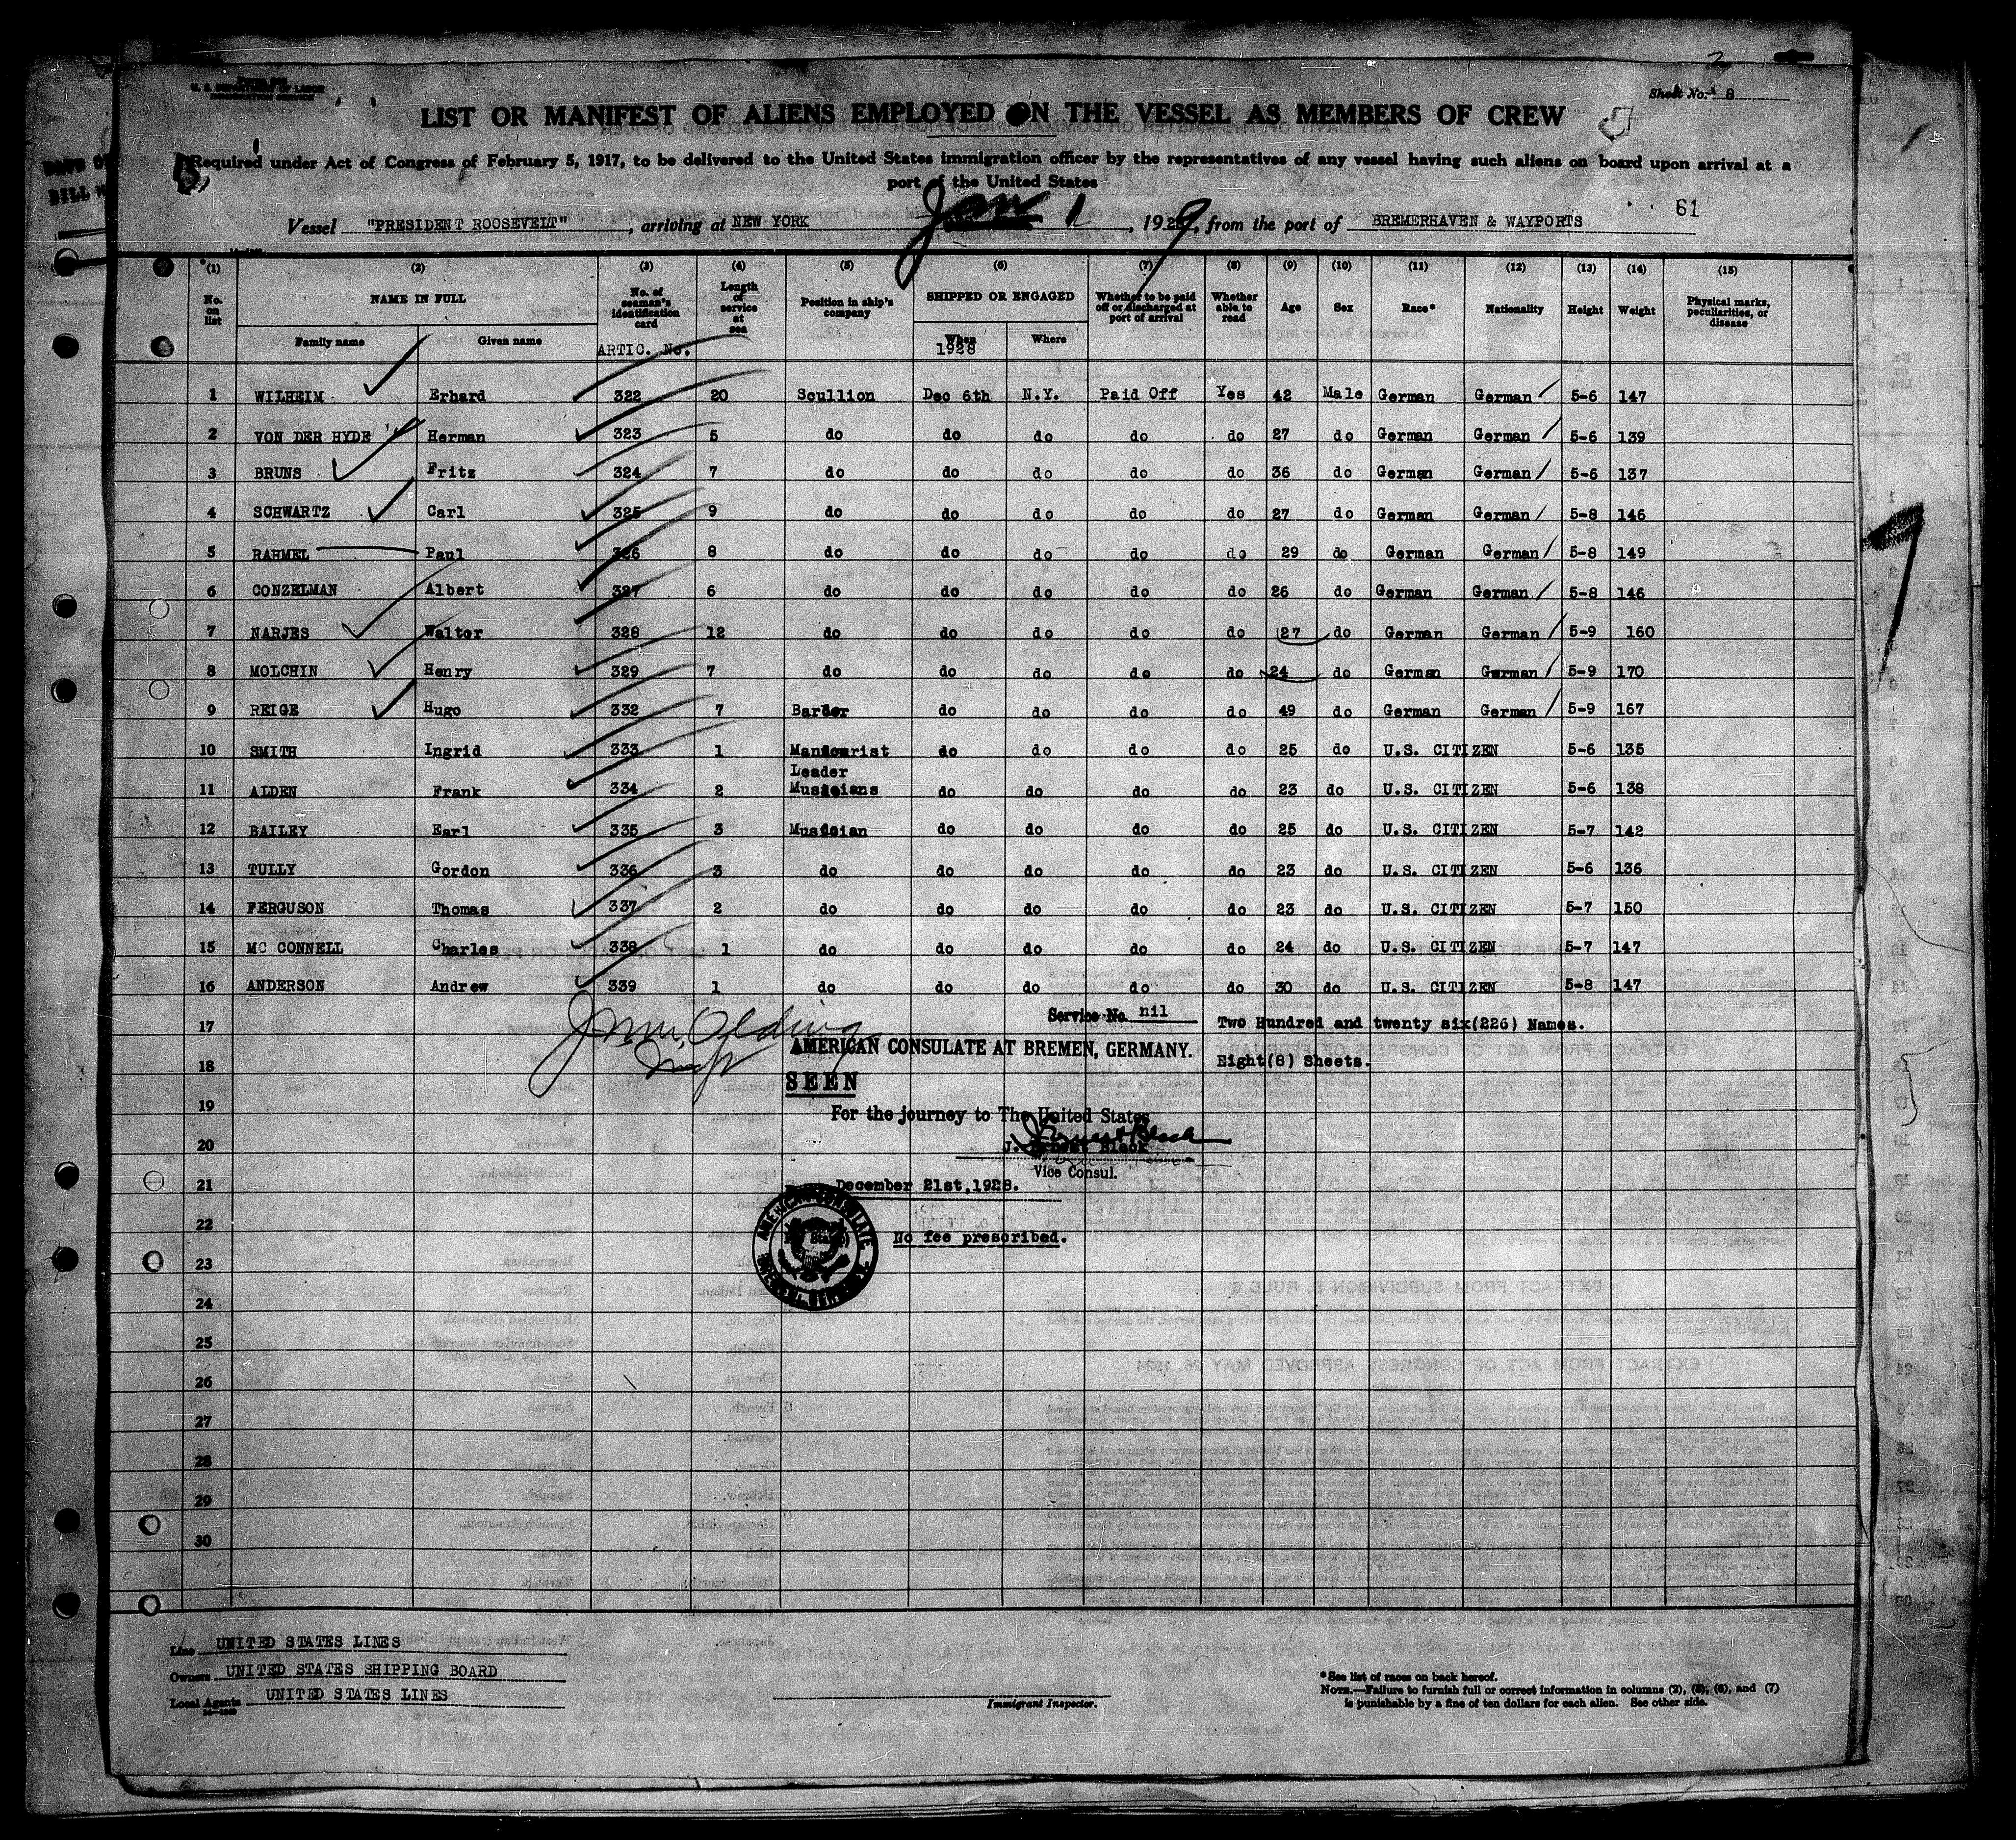 U. S. DEPARTMENT OF LABOR
IMMIGRATION SERVICE
2
Sheet No. 8
LIST OR MANIFEST OF ALIENS EMPLOYED ON THE VESSEL AS MEMBERS OF CREW
Required under Act of Congress of February 5, 1917, to be delivered to the United States immigration officer by the representatives of any vessel having such aliens on board upon arrival at a
port of the United States
Vessel "PRESIDENT ROOSEVELT", arriving at NEW YORK Jan 1, 1929, from the port of BREMERHAVEN & WAYPORTS 61
(1) (2) (3) (4) (5) (6) (7) (8) (9) (10) (11) (12) (13) (14) (15)
No. on list NAME IN FULL Family name Given name No. of seaman's identification card Length of service at sea Position in ship's company SHIPPED OR ENGAGED When Where Whether to be paid off or discharged at port of arrival Whether able to read Age Sex Race* Nationality Height Weight Physical marks, peculiarities, or disease
ARTIC. No. 1928
1 WILHEIM Erhard 322 20 Scullion Dec 6th N.Y. Paid Off Yes 42 Male German German 5-6 147
2 VON DER HYDE Herman 323 5 do do do do do 27 do German German 5-6 139
3 BRUNS Fritz 324 7 do do do do do 36 do German German 5-6 137
4 SCHWARTZ Carl 325 9 do do do do do 27 do German German 5-8 146
5 RAHMEL Paul 326 8 do do do do do 29 do German German 5-8 149
6 CONZELMAN Albert 327 6 do do do do do 26 do German German 5-8 146
7 NARJES Walter 328 12 do do do do do 27 do German German 5-9 160
8 MOLCHIN Henry 329 7 do do do do do 24 do German German 5-9 170
9 REIGE Hugo 332 7 Barber do do do do 49 do German German 5-9 167
10 SMITH Ingrid 333 1 Manicurist do do do do 25 do U.S. CITIZEN 5-6 135
11 ALDEN Frank 334 2 Leader Musicians do do do do 23 do U.S. CITIZEN 5-6 138
12 BAILEY Earl 335 3 Musician do do do do 25 do U.S. CITIZEN 5-7 142
13 TULLY Gordon 336 3 do do do do do 23 do U.S. CITIZEN 5-6 136
14 FERGUSON Thomas 337 2 do do do do do 23 do U.S. CITIZEN 5-7 150
15 MC CONNELL Charles 338 1 do do do do do 24 do U.S. CITIZEN 5-7 147
16 ANDERSON Andrew 339 1 do do do do do 30 do U.S. CITIZEN 5-8 147
17 Service No. nil Two Hundred and twenty six(226) Names.
AMERICAN CONSULATE AT BREMEN, GERMANY.
18 Eight(8) Sheets.
SEEN
19 For the journey to The United States
20 J. Ernest Black
Vice Consul.
21 December 21st,1928.
22 No fee prescribed.
23
24
25
26
27
28
29
30
Line UNITED STATES LINES
Owners UNITED STATES SHIPPING BOARD
Local Agents UNITED STATES LINES
Immigrant Inspector.
*See list of races on back hereof.
NOTE.—Failure to furnish full or correct information in columns (2), (5), (6), and (7)
is punishable by a fine of ten dollars for each alien. See other side.